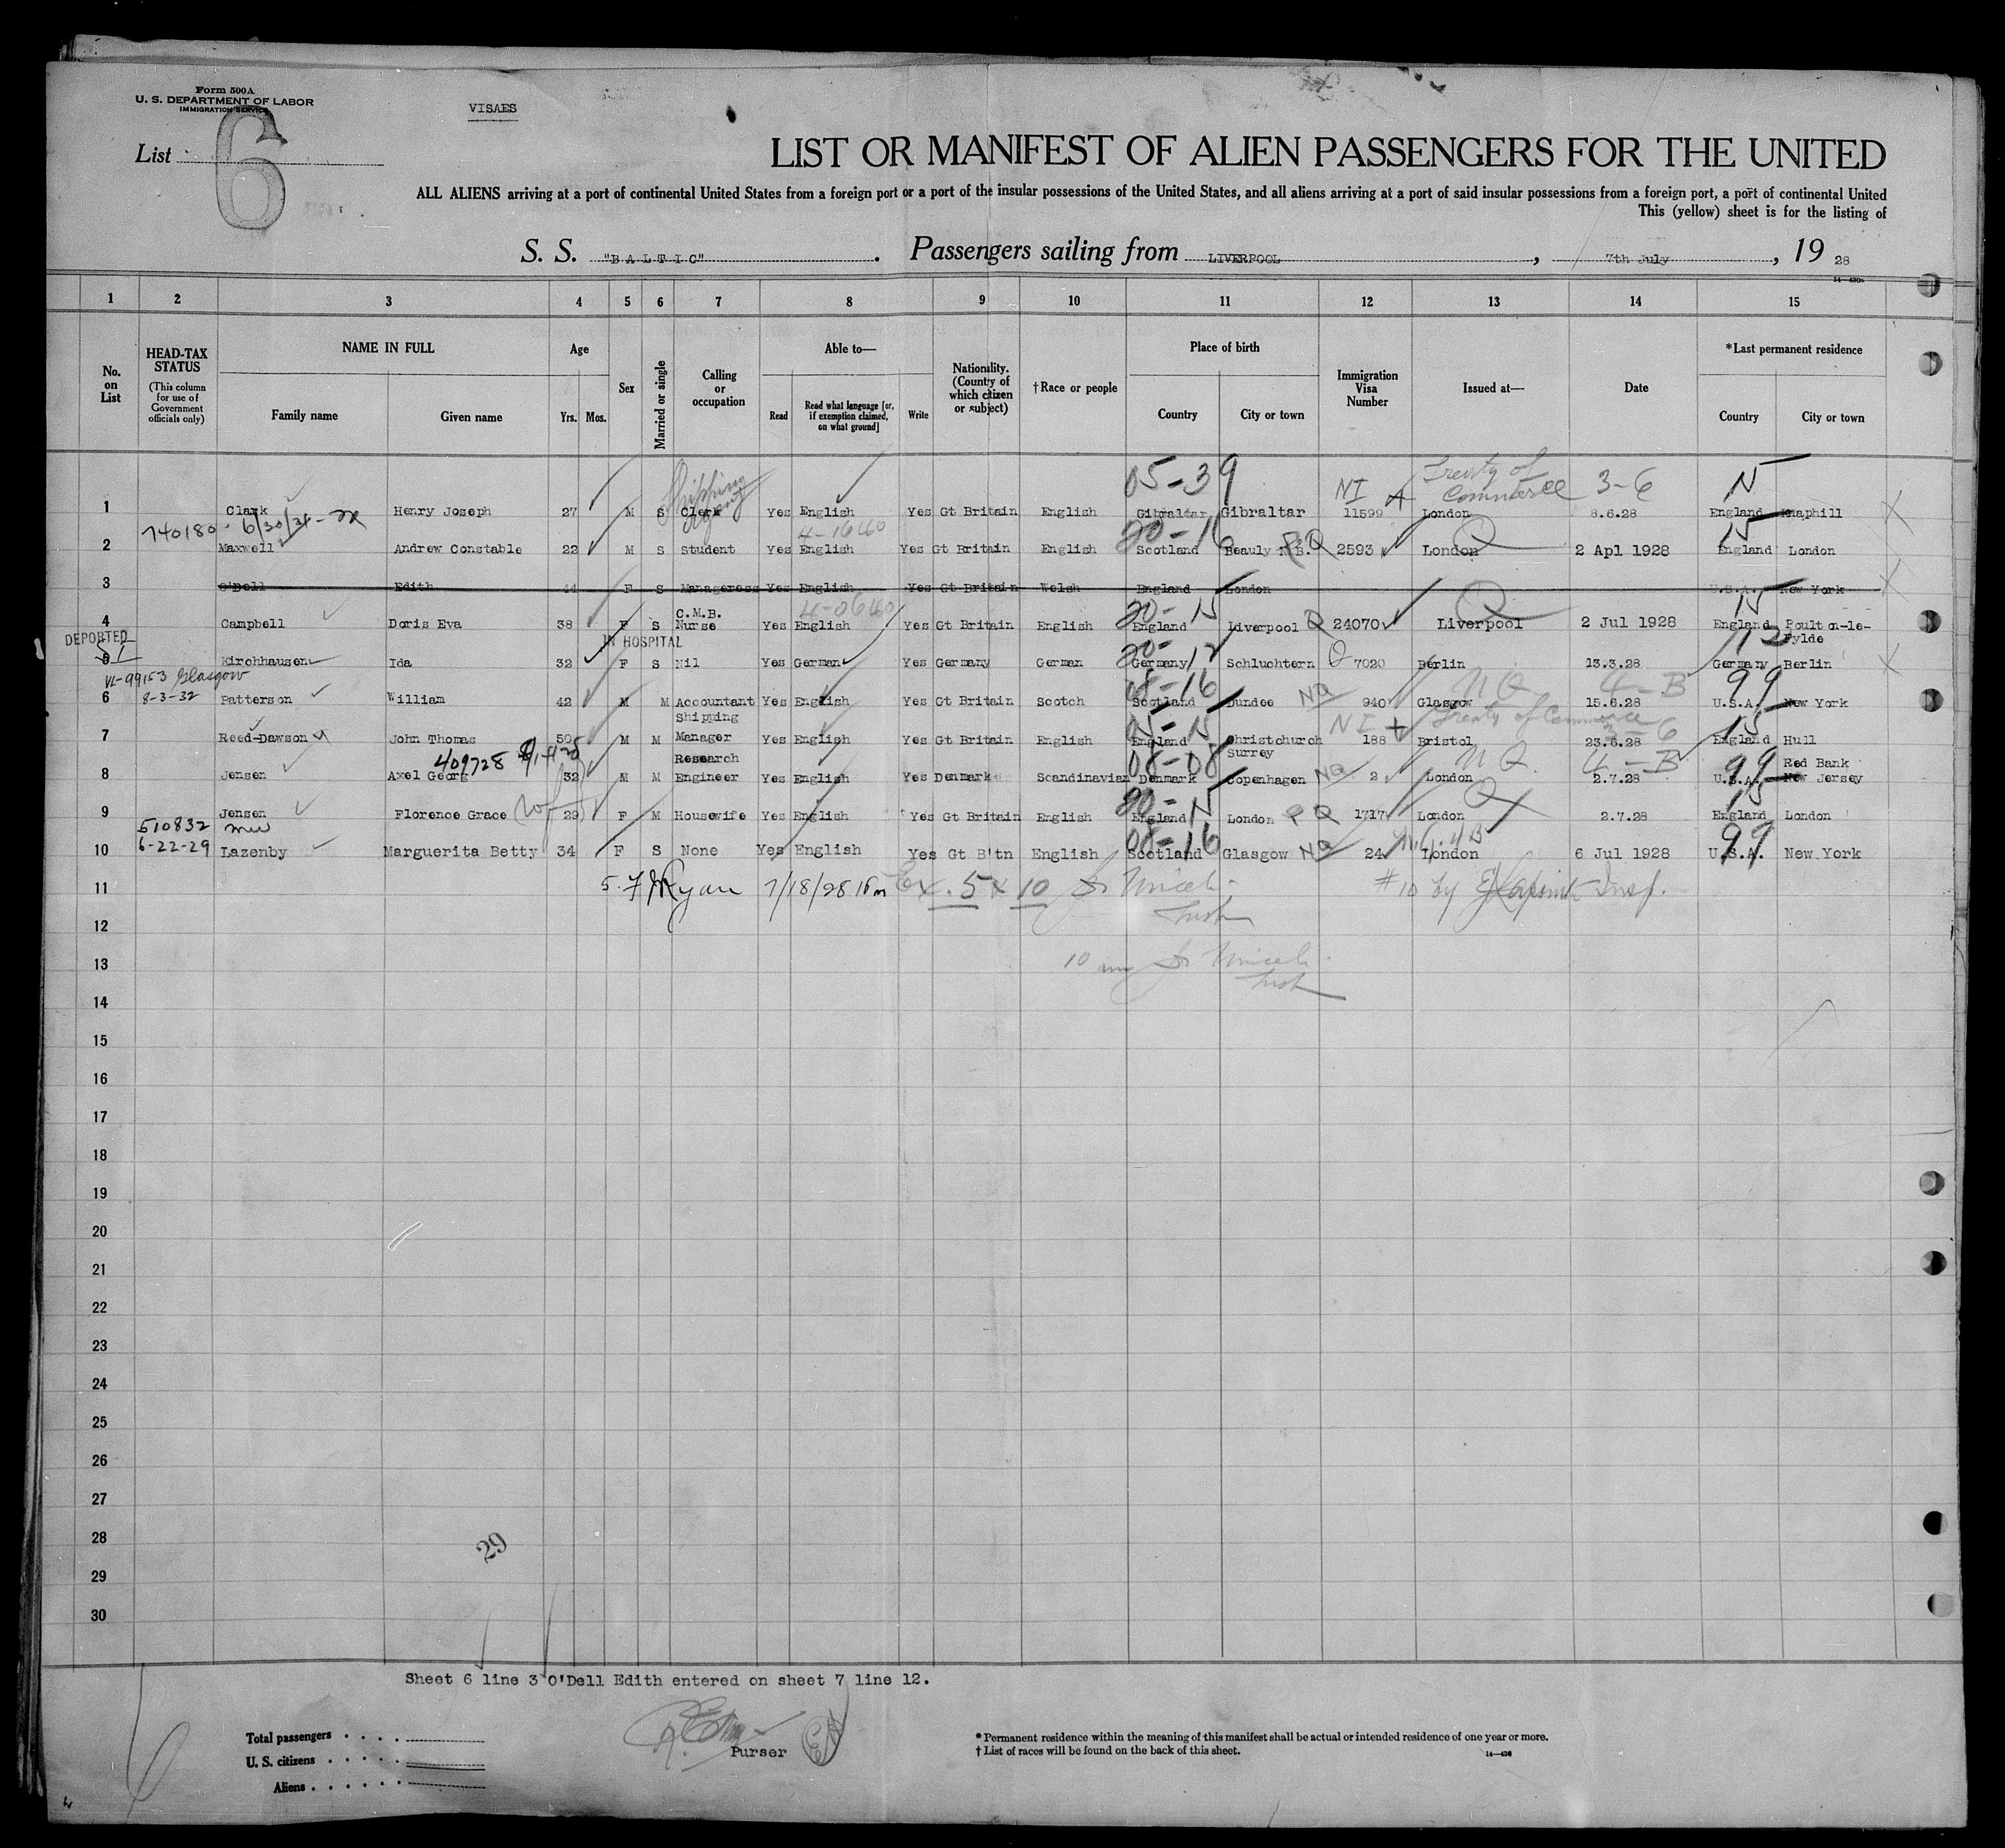 Form 500A
U. S. DEPARTMENT OF LABOR
IMMIGRATION SERVICE
VISAES
List 6
LIST OR MANIFEST OF ALIEN PASSENGERS FOR THE UNITED
ALL ALIENS arriving at a port of continental United States from a foreign port or a port of the insular possessions of the United States, and all aliens arriving at a port of said insular possessions from a foreign port, a port of continental United
This (yellow) sheet is for the listing of
S. S. "BALTIC". Passengers sailing from LIVERPOOL, 7th July, 19 28
1 2 3 4 5 6 7 8 9 10 11 12 13 14 15
No. on List
HEAD-TAX STATUS (This column for use of Government officials only)
NAME IN FULL Family name Given name
Age Yrs. Mos.
Sex
Married or single
Calling or occupation
Able to— Read Read what language [or, if exemption claimed, on what ground] Write
Nationality. (Country of which citizen or subject)
†Race or people
Place of birth Country City or town
Immigration Visa Number
Issued at—
Date
*Last permanent residence Country City or town
05-39 NI Treaty of Commerce 3-6 N
Shipping Agent
1 Clark Henry Joseph 27 M S Clerk Yes English Yes Gt Britain English Gibraltar Gibraltar 11599 London 8.6.28 England Knaphill
740180 - 6/30/31 4-16460 20-16 Q Q 15
2 Maxwell Andrew Constable 22 M S Student Yes English Yes Gt Britain English Scotland Beauly N.B. 2593 London 2 Apl 1928 England London
3 O'Dell Edith 44 F S Manageress Yes English Yes Gt Britain Welsh England London U.S.A. New York
4-06460 20-15 Q Q 15
4 Campbell Doris Eva 38 F S C.M.B. Nurse Yes English Yes Gt Britain English England Liverpool 24070 Liverpool 2 Jul 1928 England Poulton-le-Fylde
DEPORTED SI IN HOSPITAL 20-12 Q 12
5 Kirchhausen Ida 32 F S Nil Yes German Yes Germany German Germany Schluchtern 7020 Berlin 13.3.28 Germany Berlin
VL-99153 Glasgow 8-3-32 08-16 NQ NQ 4-B 99
6 Patterson William 42 M M Accountant Yes English Yes Gt Britain Scotch Scotland Dundee 940 Glasgow 15.6.28 U.S.A. New York
15-15 NI Treaty of Commerce 3-6 15
7 Reed-Dawson John Thomas 50 M M Shipping Manager Yes English Yes Gt Britain English England Christchurch Surrey 188 Bristol 23.6.28 England Hull
409728 08-08 NQ NQ 4-B 99
8 Jensen Axel Georg 32 M M Research Engineer Yes English Yes Denmark Scandinavian Denmark Copenhagen 2 London 2.7.28 U.S.A. Red Bank New Jersey
20-15 Q Q 15
9 Jensen Florence Grace (wf) 29 F M Housewife Yes English Yes Gt Britain English England London 1717 London 2.7.28 England London
510832 6-22-29 08-16 NQ 99
10 Lazenby Marguerita Betty 34 F S None Yes English Yes Gt B'tn English Scotland Glasgow 24 London 6 Jul 1928 U.S.A. New York
11 Ryan 7/18/28 Ex. 5 x 10 #10 by Insp.
12
13
14
15
16
17
18
19
20
21
22
23
24
25
26
27
28
29
29
30
Sheet 6 line 3 O'Dell Edith entered on sheet 7 line 12.
Purser
Total passengers
U. S. citizens
Aliens
* Permanent residence within the meaning of this manifest shall be actual or intended residence of one year or more.
† List of races will be found on the back of this sheet.